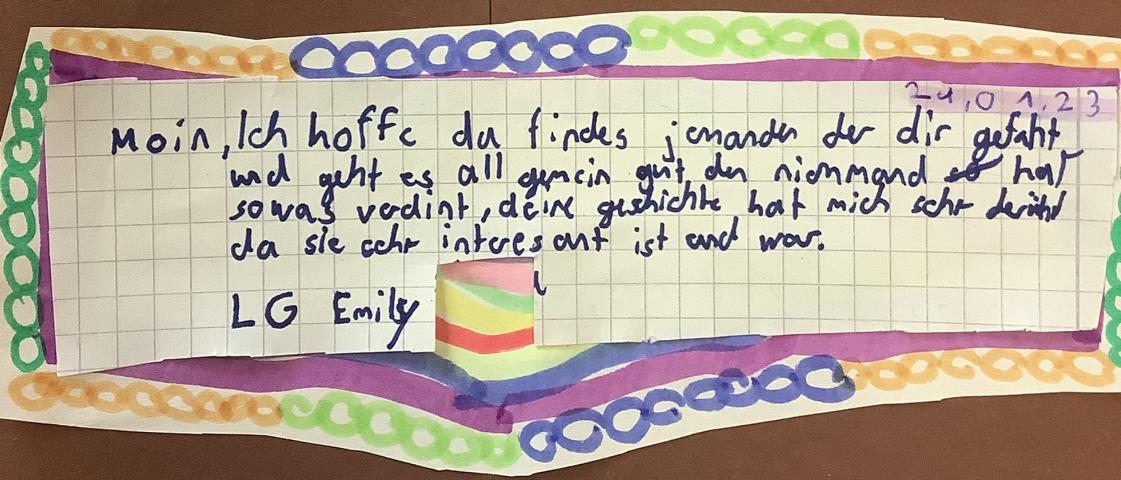 24,01,23
Moin, Ich hoffe du findes jemanden der dir gefählt
und geht es all gemein gut, den niemmand hat
sowas verdint, deine geschichte hat mich sehr berührt
da sie sehr interesant ist und war.
LG Emily